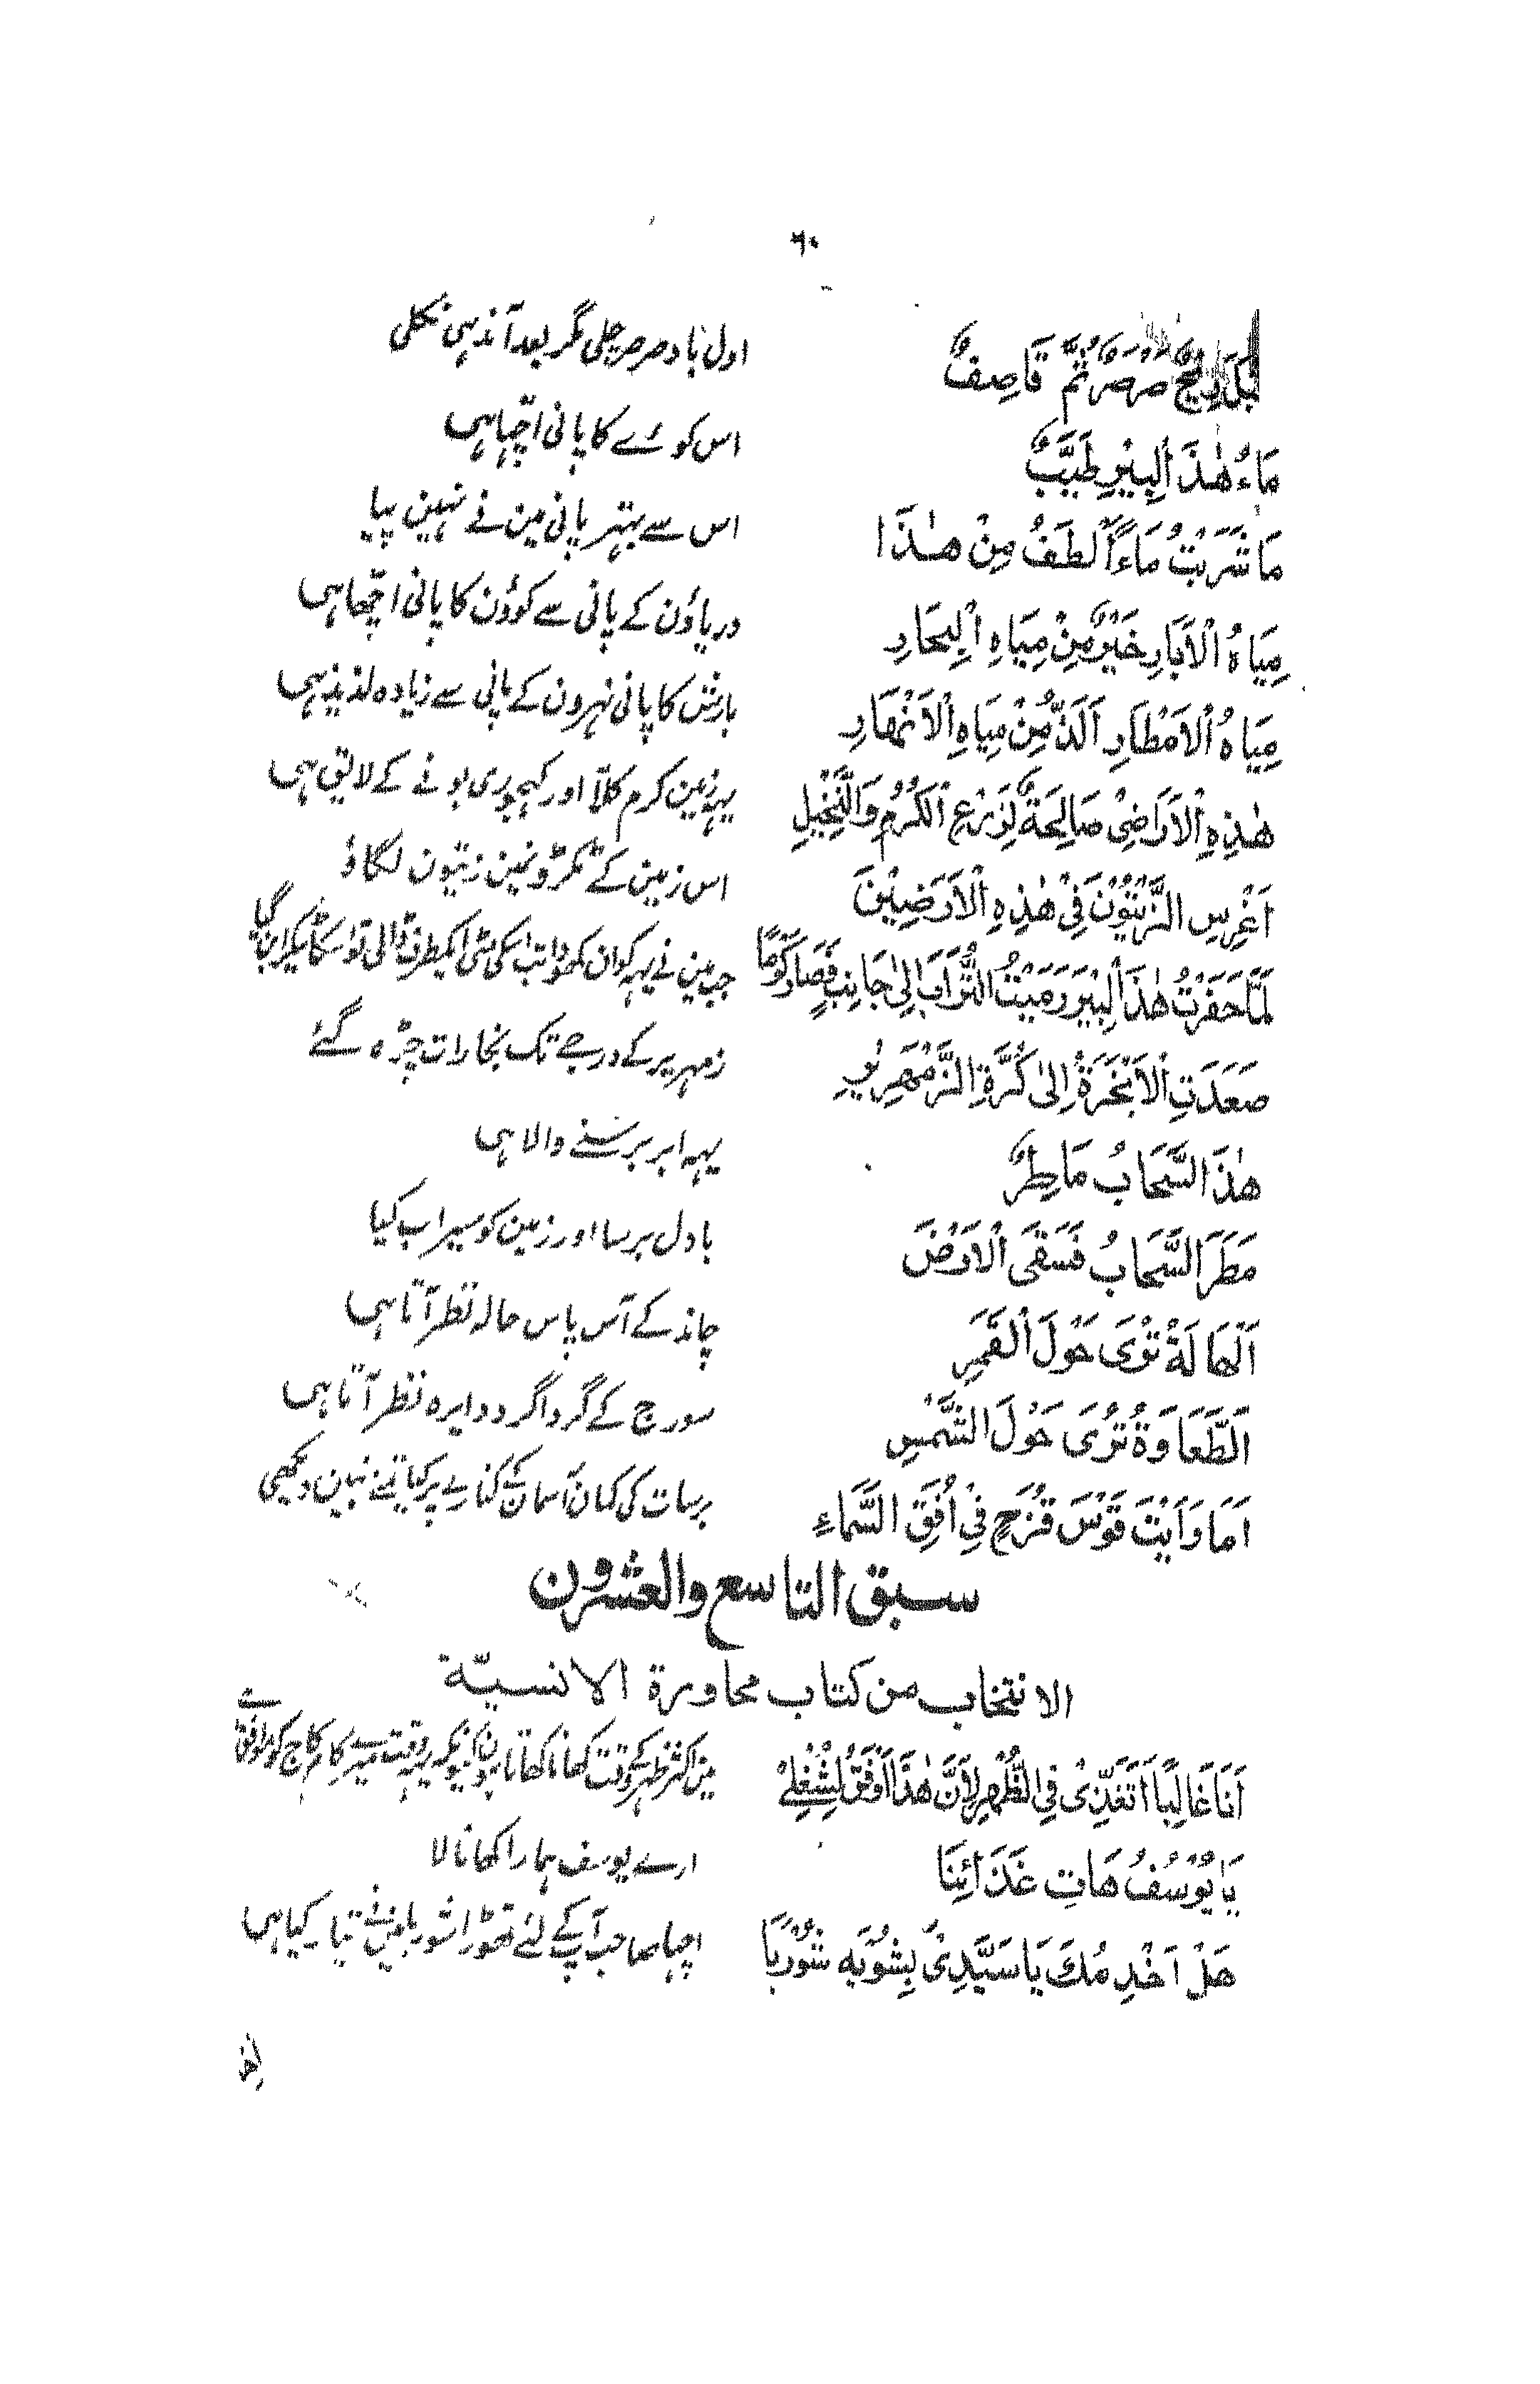 ۶۰
رِیْحٌ صَرْصَرٌ ثُمَّ قَاصِفٌ اول باد صرصر چلی مگر بعد آندہی نکلی
مَاءُ هٰذَ الْبِیْرِ طَیَّبٌ اس کوئے کا پانی اچّہا ہی
مَا شَرَبْتُ مَاءً اَلْطَفُ مِنْ هٰذَا اس سے بہتر پانی مین نے نہین پیا
مِیَاهُ الْاَبَارِ خَیْرٌ مِنْ مِیَاهِ الْبِحَارِ دریاؤن کے پانی سے کوؤن کا پانی اچّھا ہی
مِیَاهُ الْاَمْطَارِ اَلَذُّ مِنْ مِیَاهِ الْاَنْهَارِ بارش کا پانی نہرون کے پانی سے زیادہ لذیذ ہی
هٰذِهِ الْاَرَاضِیْ صَالِحَةٌ لِزَرْعِ الْکَرُمِ وَالنَّخِیْلِ یہہ زمین کرم کلّا اور کہجوری بونے کے لایق ہی
اَغْرِسِ الزَّیْتُوْنَ فِیْ هٰذِهِ الْاَرَضِیْنَ اس زمین کے ٹکڑونمین زیتون لگاؤ
لَمَّا حَفَرْتُ هٰذَ الْبِیْرَ رَمَیْتُ التُّرَابَ اِلیٰ جَانِبٍ فَصَارَ کَوْمًا جب مین نے یہہ کوان کھودا تب اسکی مٹی ایکطرف ڈالی تو اسکا ٹیکرا بن گیا
صَعَدَتِ الْاَبْخَرَةُ اِلیٰ کُرَّةِ الزَّمْهَرِیْرِ زمہریر کے درجے تک بخارات چڑہ گئے
هٰذَ السَّحَابُ مَاطِرٌ یہہ ابر برسنے والا ہی
مَطَرَ السَّحَابُ فَسَقَی الْاَرْضَ بادل برسا اور زمین کو سیراب کیا
اَلْهَالَةُ تُرَی حَوْلَ الْقَمَرِ چاند کے آس پاس حالہ نظر آتا ہی
اَلطَّفَاوَةُ تُرَی حَوْلَ الشَّمْسِ سورج کے گرداگرد دایرہ نظر آتا ہی
اَمَا رَاَیْتَ قَوْسَ قُزَحٍ فِیْ اُفُقِ السَّمَاءِ برسات کی کمان آسمان کے کنارے پر کیا تمنے نہین دیکھی
سبق التاسع والعشرون
الانتخاب من کتاب محاورة الانسیّة
اَنَا غَالِبًا اَتَغَذِّیْ فِی الظُّهْرِ لِاَنَّ هٰذَا اَوْفَقُ لِشُغْلِیْ مین اکثر ظہر کے وقت کھانا کھاتا ہون کیونکہ یہہ وقت میرے کام کاج کو موافق ہے
یَا یُوْسُفُ هَاتِ غَذَائِنَا ارے یوسف ہمارا کھانا لا
هَلْ اَخْدِمُكَ یَا سَیَّدِیْ بِشُوَیَهِ شُوْرَبَا اچہا صاحب آپ کے لئے تھوڑا شوربا مینے تیار کیا ہی